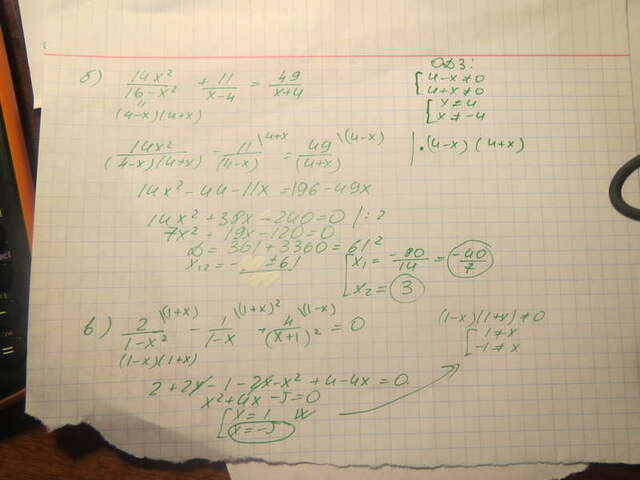 б) 14x²/(16-x²) + 11/(x-4) = 49/(x+4)
(4-x)(4+x)
ОДЗ:
[4-x≠0
4+x≠0
[x≠4
x≠-4
14x²/((4-x)(4+x)) - 11/(4-x) \4+x = 49/(4+x) \(4-x) | ·(4-x)(4+x)
14x² - 44 - 11x = 196 - 49x
14x² + 38x - 240 = 0 / : 2
7x² + 19x - 120 = 0
D = 361 + 3360 = 61²
x₁,₂ = - ± 61
[x₁ = -80/14 = -40/7
x₂ = 3
в) 2/(1-x²) \(1+x) - 1/(1-x) \(1+x)² + 4/(x+1)² \(1-x) = 0
(1-x)(1+x)
(1-x)(1+x)≠0
[1≠x
-1≠x
2+2x-1-2x-x²+4-4x=0
x²+4x-5=0
[x=1
x=-5